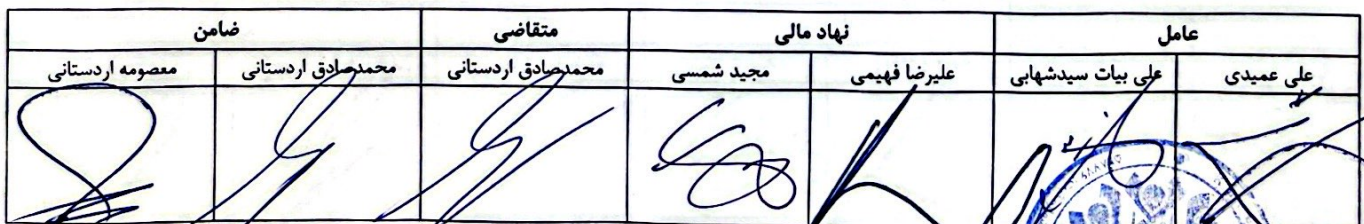 عامل نهاد مالی متقاضی ضامن
علی عمیدی علی بیات سیدشهابی علیرضا فهیمی مجید شمسی محمدصادق اردستانی محمدصادق اردستانی معصومه اردستانی